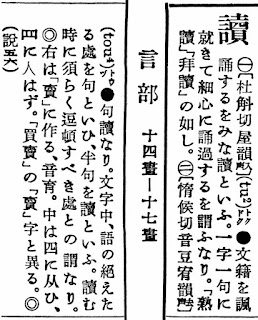 讀 ㊀[杜斛切屋韻](tu²)トク ●文籍を諷
誦するをみな讀といふ。一字一句に
就きて細心に誦過するを謂ふなり。「熟
讀」「拜讀」の如し。㊁[惰候切音豆宥韻]
言部 十四畫—十七畫
(tou⁴)トウ ●句讀なり。文字中、語の絕えた
る處を句といひ、半句を讀といふ。讀む
時に須らく逗頓すべき處との謂なり。
◎右は「𧶠」に作る、音育。中は四に从ひ、
罒に从はず。「買賣」の「賣」字と異る。◎
(説五六)